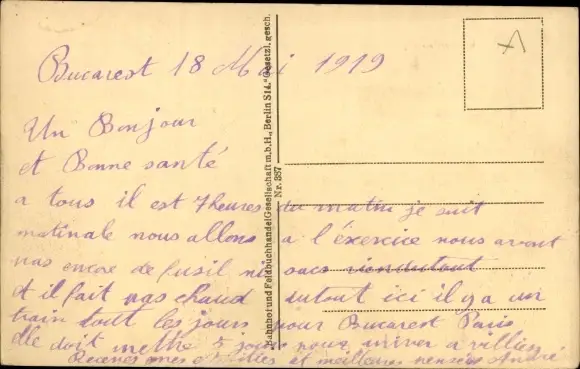 Bucarest 18 Mai 1919
Un Bonjour
et Bonne santé
a tous il est 7 heures du matin je suit
matinale nous allons a l'éxercice nous avont
pas encore de fusil ni sacs riendutout
et il fait pas chaud dutout ici il y a un
train tout les jours pour Bucarest Paris
elle doit mettre 5 jours nous arriver a villiers
Recevez mes amitiés et meilleures pensées André
Bahnhof und Feldbuchhandel Gesellschaft m.b.H., Berlin S14. Gesetzl. gesch.
Nr. 387
A